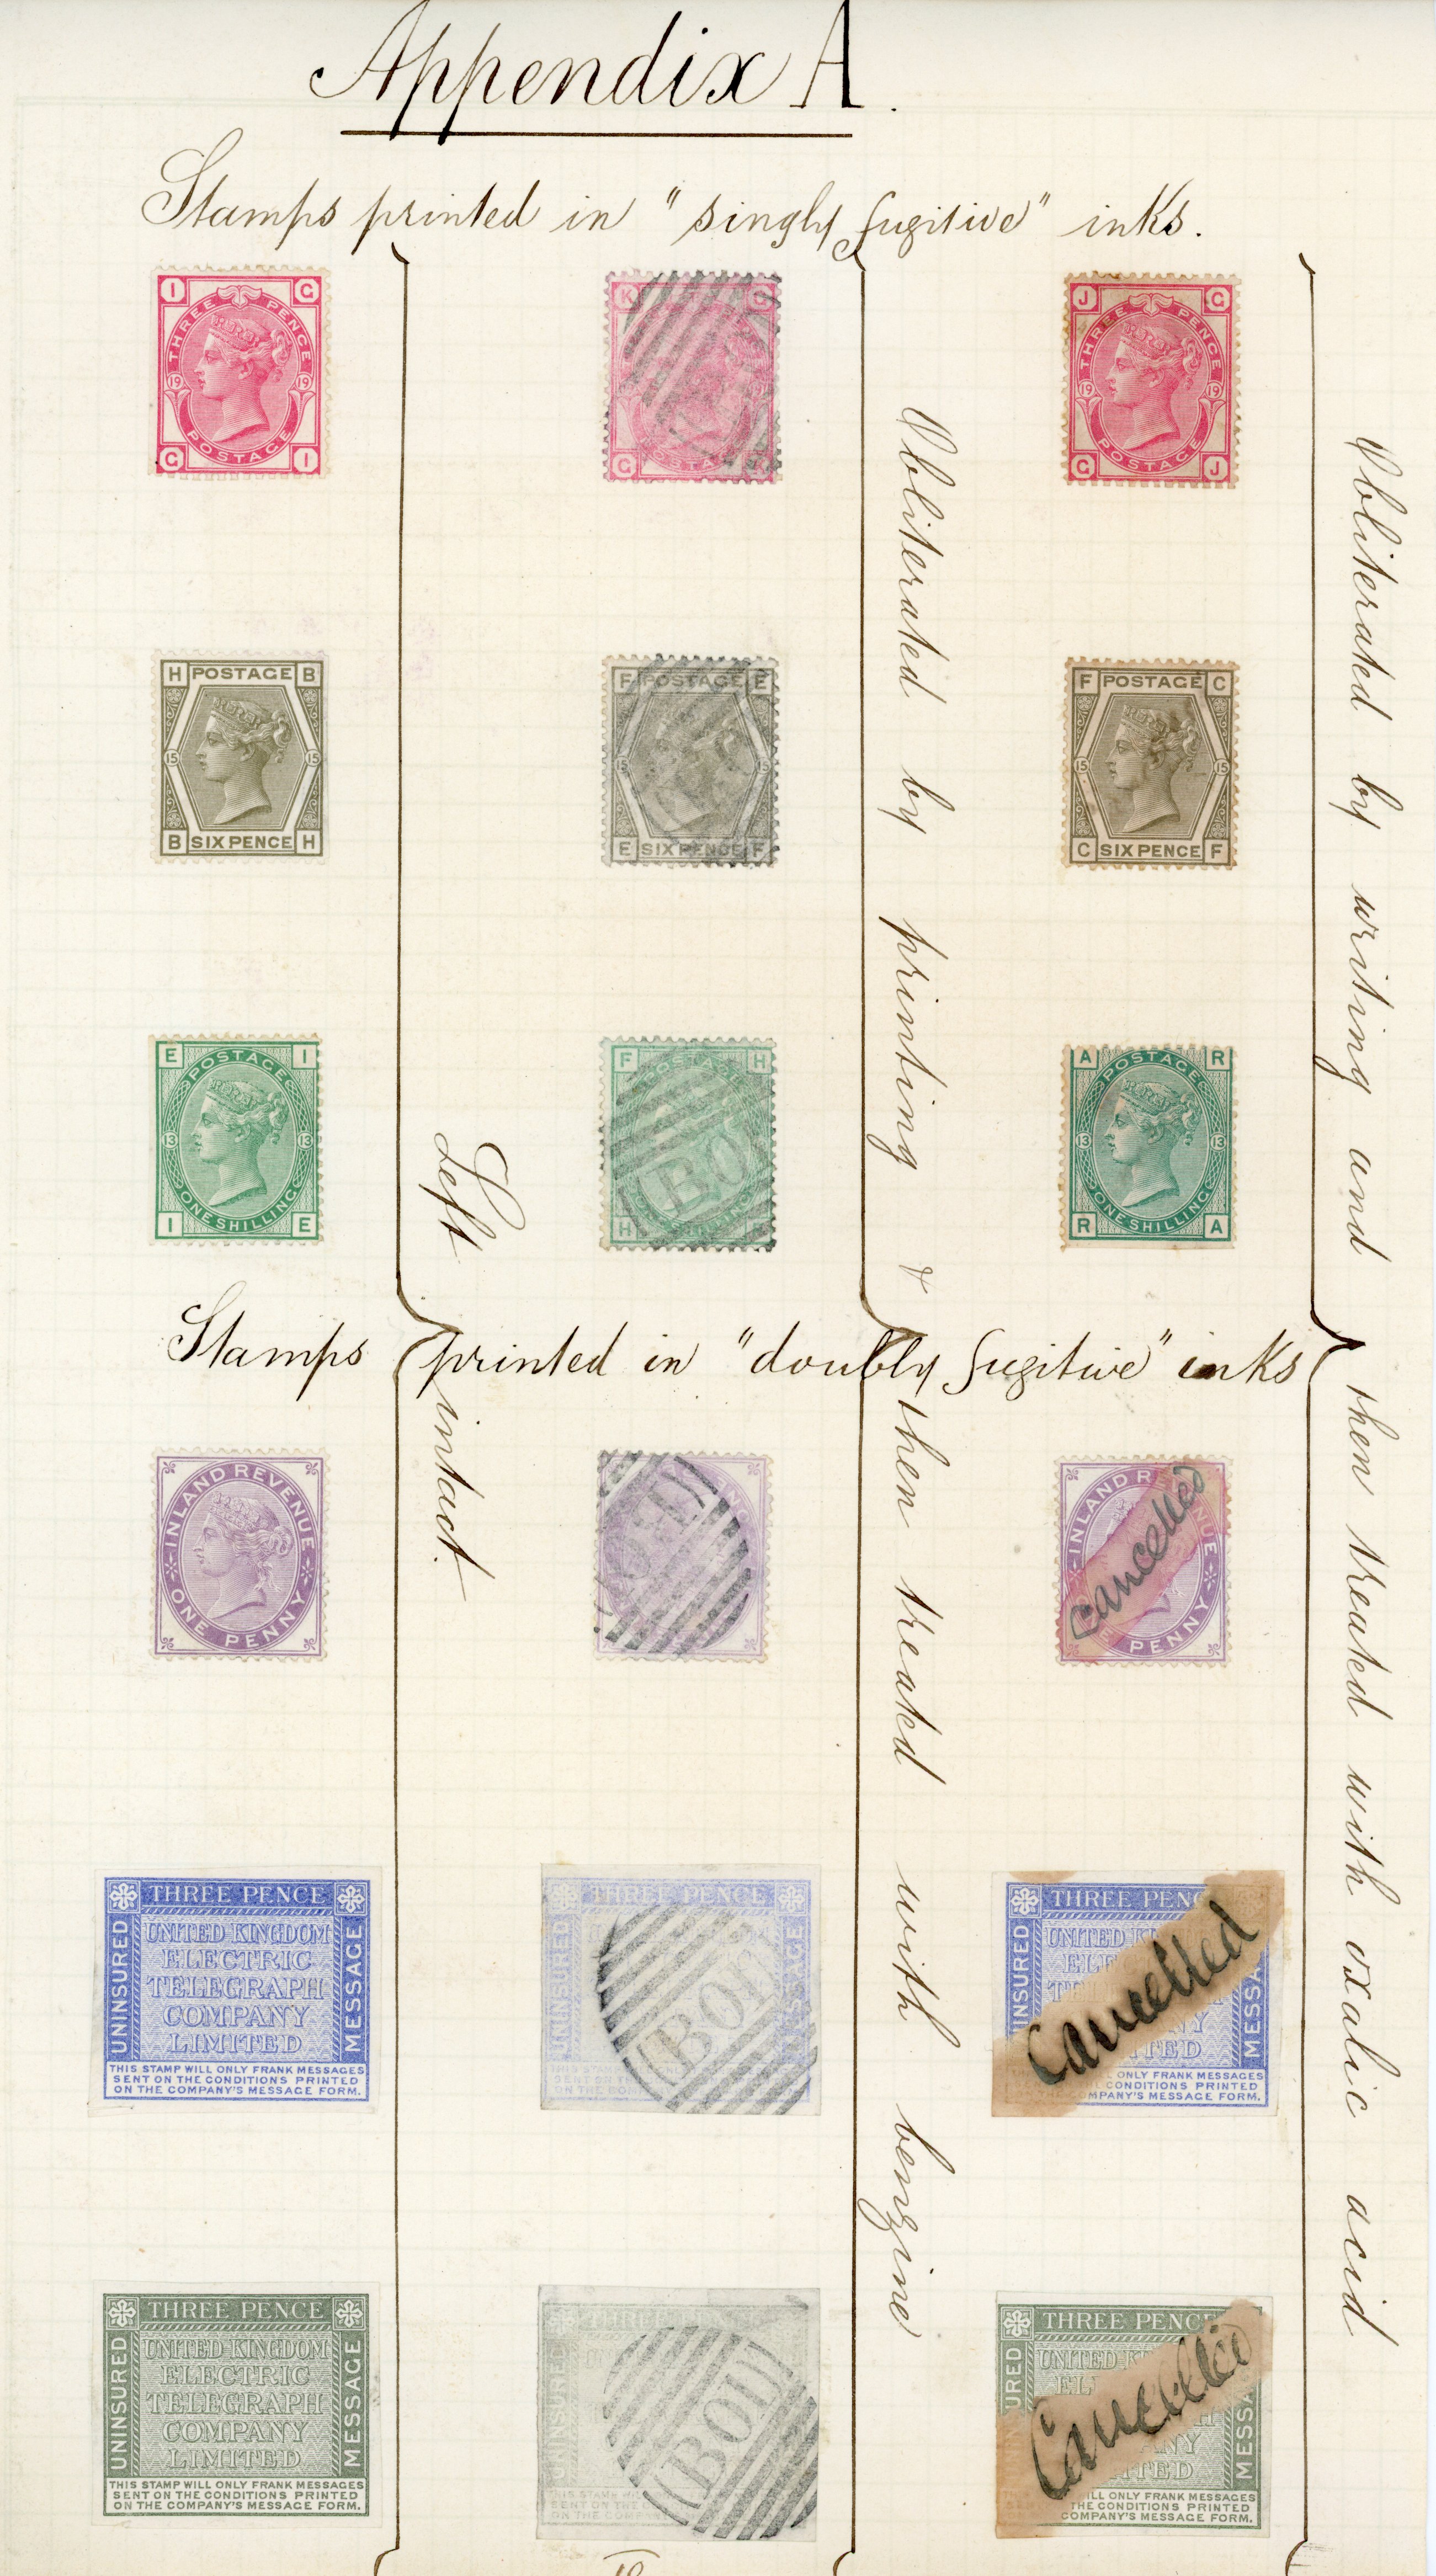 Appendix A.
Stamps printed in "singly fugitive" inks.
I G
THREE PENCE
19 19
POSTAGE
G I
K G
G
J G
THREE PENCE
19 19
POSTAGE
G J
H POSTAGE B
15 15
B SIX PENCE H
F POSTAGE E
15 15
E SIX PENCE F
F POSTAGE C
15 15
C SIX PENCE F
E I
POSTAGE
13 13
ONE SHILLING
I E
F H
POSTAGE
BO
H
A R
POSTAGE
13 13
ONE SHILLING
R A
Left intact.
Obliterated by printing & then treated with benzine
Obliterated by writing and then treated with oxalic acid
Stamps printed in "doubly fugitive" inks
INLAND REVENUE
ONE PENNY
INLAND RE NUE
E PENNY
cancelled
THREE PENCE
UNINSURED
UNITED KINGDOM
ELECTRIC
TELEGRAPH
COMPANY
LIMITED
MESSAGE
THIS STAMP WILL ONLY FRANK MESSAGES
SENT ON THE CONDITIONS PRINTED
ON THE COMPANY'S MESSAGE FORM.
THREE PENC
UNINSURED
MESSAGE
BOI
THREE PENC
INSURED
UNITED KINGD
ELE
TE
NY
ITED
MESSA
cancelled
ONLY FRANK MESSAGES
CONDITIONS PRINTED
MPANY'S MESSAGE FORM.
THREE PENCE
UNINSURED
UNITED KINGDOM
ELECTRIC
TELEGRAPH
COMPANY
LIMITED
MESSAGE
THIS STAMP WILL ONLY FRANK MESSAGES
SENT ON THE CONDITIONS PRINTED
ON THE COMPANY'S MESSAGE FORM.
UNINSURED
BOI
THREE PENCE
URED
UNITED K
EL
ANY
ITED
MESSA
Cancelled
ILL ONLY FRANK MESSAGES
THE CONDITIONS PRINTED
COMPANY'S MESSAGE FORM.